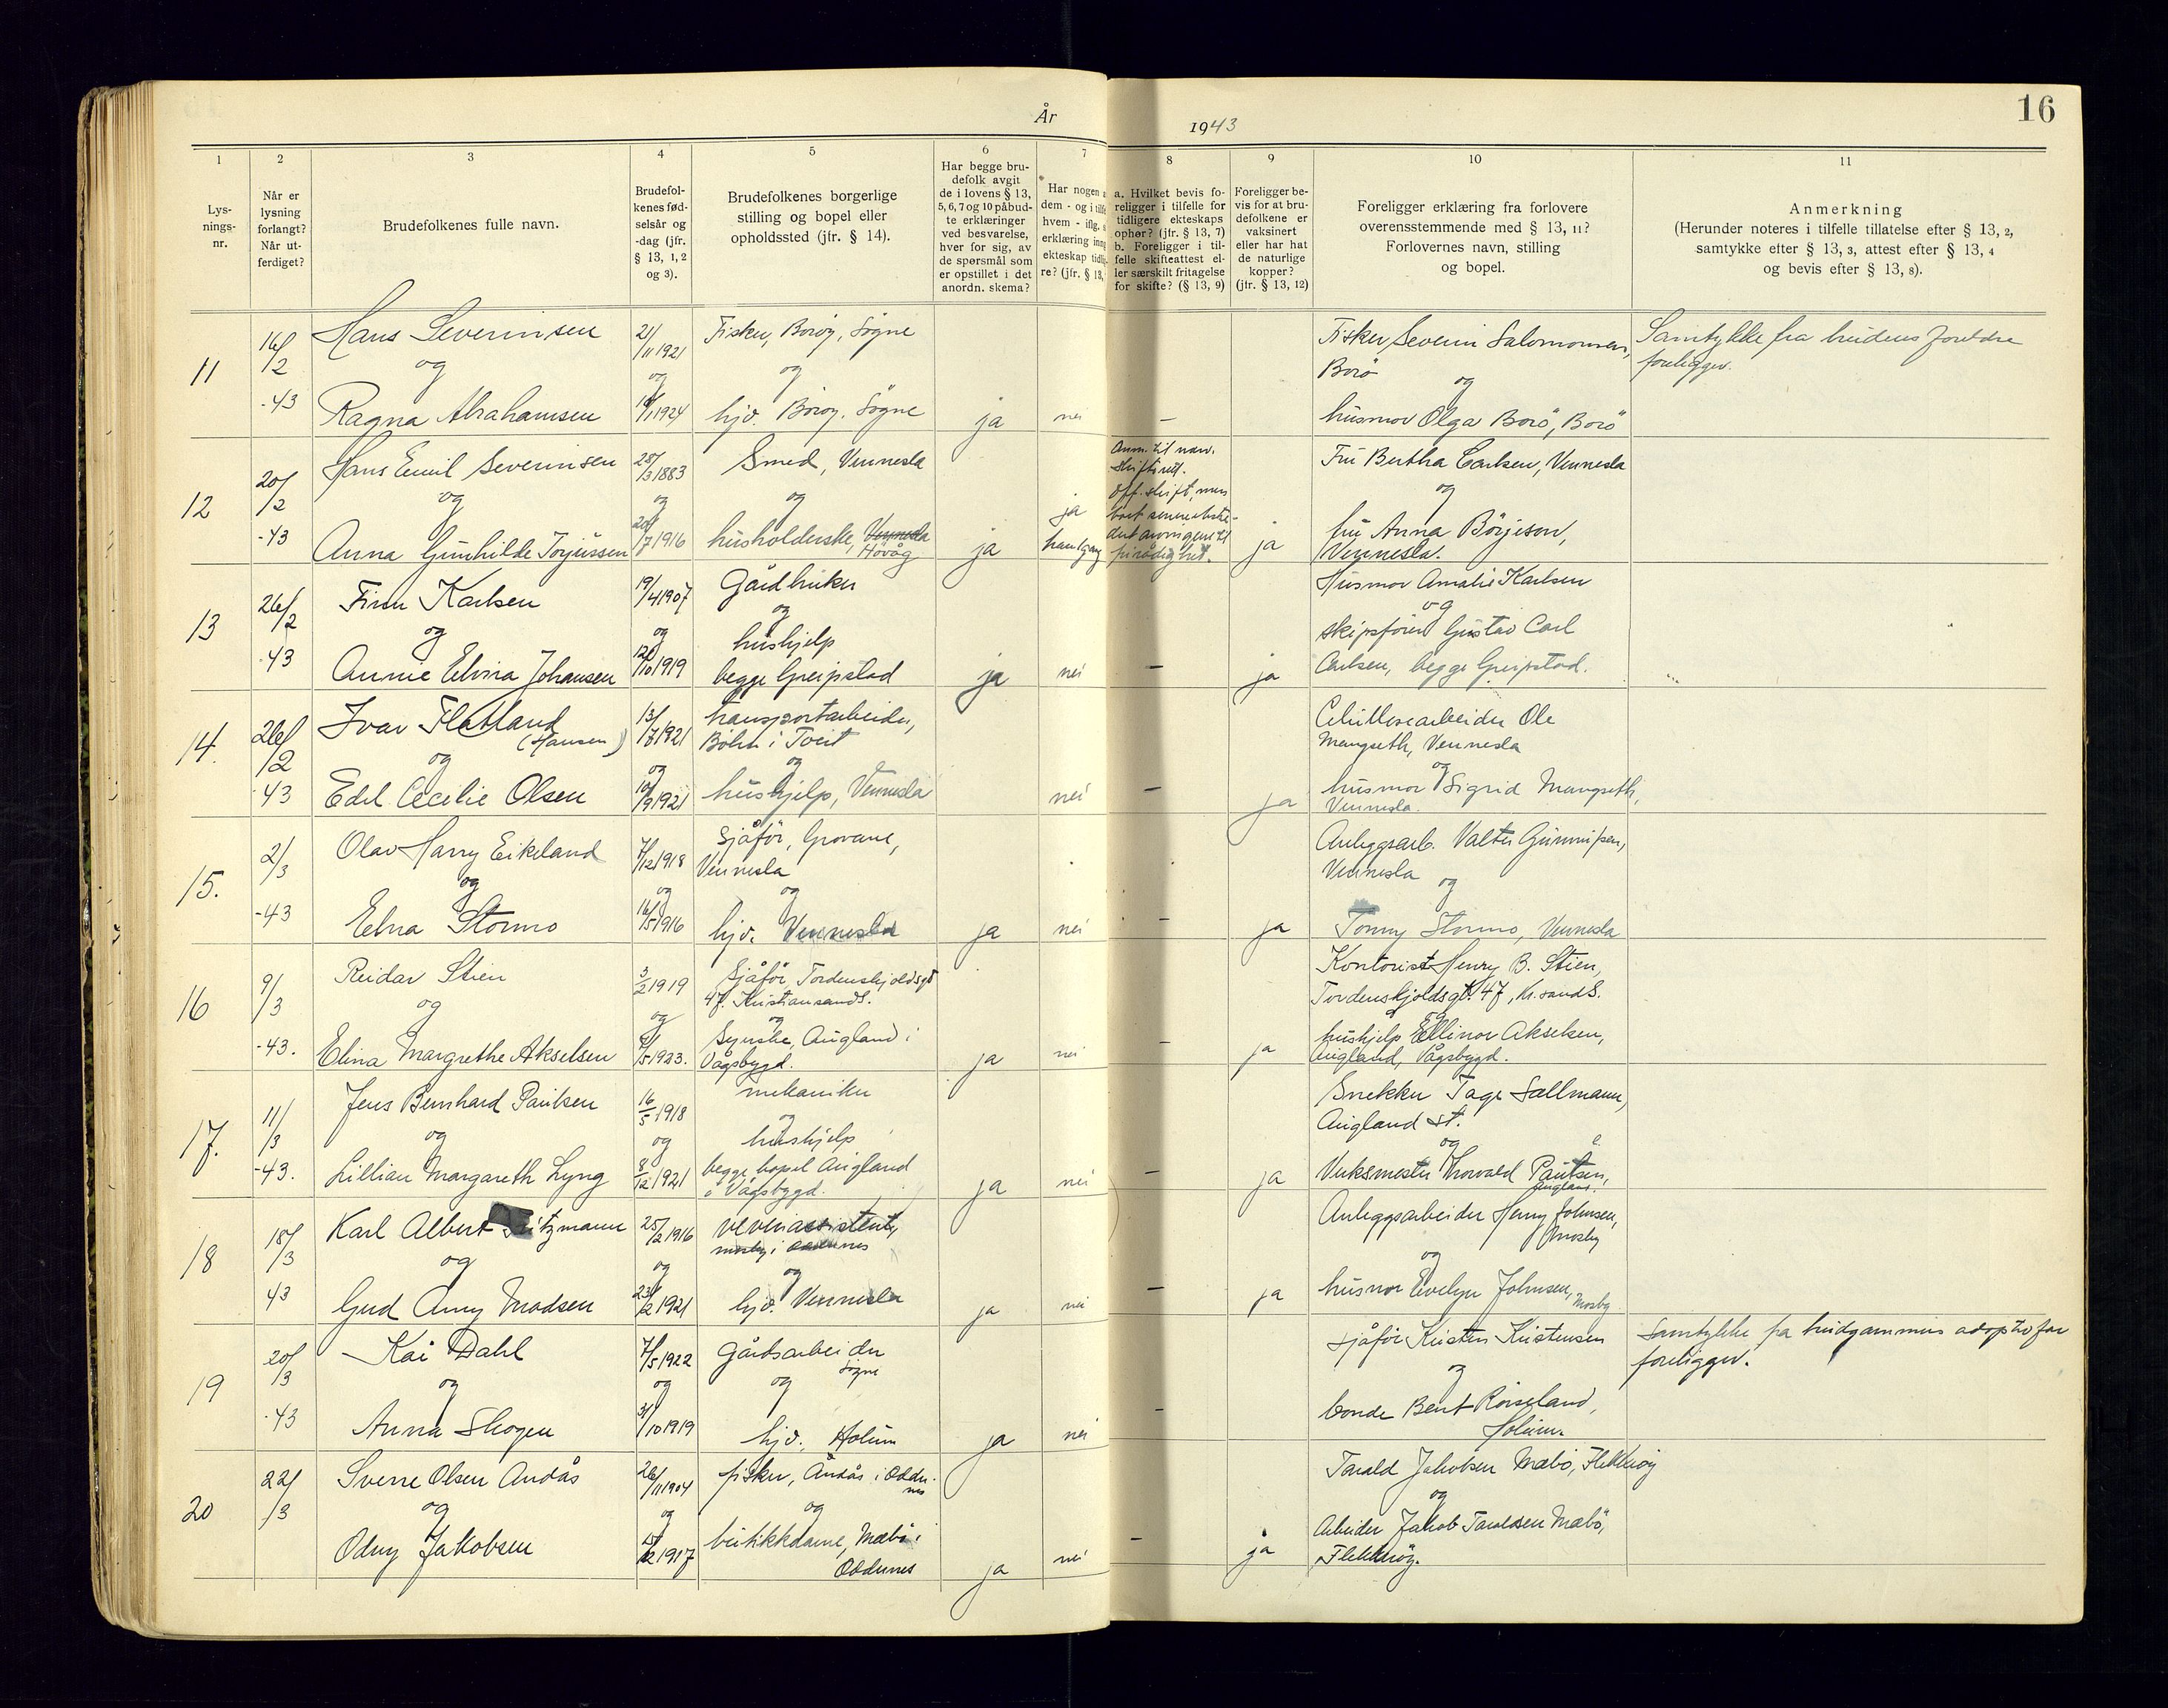 16
År 1943
1
Lys-
nings-
nr.
2
Når er
lysning
forlangt?
Når ut-
ferdiget?
3
Brudefolkenes fulle navn.
4
Brudefol-
kenes fød-
selsår og
-dag (jfr.
§ 13, 1, 2
og 3).
5
Brudefolkenes borgerlige
stilling og bopel eller
opholdssted (jfr. § 14).
6
Har begge bru-
defolk avgit
de i lovens § 13,
5, 6, 7 og 10 påbud-
te erklæringer
ved besvarelse,
hver for sig, av
de spørsmål som
er opstillet i det
anordn. skema?
7
Har nogen
dem - og i
hvem - iflg.
erklæring
ekteskap
re? (jfr. § 13,
8
a. Hvilket bevis fo-
religger i tilfelle for
tidligere ekteskaps
ophør? (jfr. § 13, 7)
b. Foreligger i til-
felle skifteattest el-
ler særskilt fritagelse
for skifte? (§ 13, 9)
9
Foreligger be-
vis for at bru-
defolkene er
vaksinert
eller har hat
de naturlige
kopper?
(jfr. § 13, 12)
10
Foreligger erklæring fra forlovere
overensstemmende med § 13, 11?
Forlovernes navn, stilling
og bopel.
11
Anmerkning
(Herunder noteres i tilfelle tillatelse efter § 13, 2,
samtykke efter § 13, 3, attest efter § 13, 4
og bevis efter § 13, 8).
11
16/2
-43
Hans Severinsen
og
Ragna Abrahamsen
21/11 1921
og
1924
Fisker, Borøy, Søgne
og
hjv. Borøy, Søgne
ja
nei
—
Fisker Severin Salomonsen,
Borö
og
husmor Olga Borö, Borö
Samtykke fra brudens foreldre
foreligger.
12
20/2
-43
Hans Emil Severinsen
og
Anna Gunhilde Torjussen
28/3 1883
og
20/7 1916
Smed, Vennesla
og
husholderske, Vennesla
Høvåg
ja
ja
ja
Fru Bertha Carlsen, Vennesla
og
fru Anna Börjeson,
Vennesla.
13
26/2
-43
Finn Karlsen
og
Annie Elvira Johansen
19/4 1907
og
/10 1919
Gårdbruker
og
hushjelp
begge Greipstad
ja
nei
—
ja
Husmor Amalie Karlsen
og
skipsfører Gustav Carl
Carlsen, begge Greipstad.
14.
26/2
-43
Ivar Flatland
(Hansen)
og
Edel Cecilie Olsen
13/7 1921
og
10/9 1921
transportarbeider,
i Tveit
og
hushjelp, Vennesla
nei
—
ja
Cellulosearbeider Ole
Mangseth, Vennesla
og
husmor Sigrid Mangseth,
Vennesla.
15.
2/3
-43
Olav Harry Eikeland
og
Elna Stormo
7/12 1918
og
16/5 1916
Sjåför, Grovane,
Vennesla
og
hjv. Vennesla
ja
nei
—
ja
Anleggsarb. Valter
Vennesla
og
Tonny Stormo, Vennesla
16
9/3
-43.
Reidar Stien
og
Elina Margrethe Akselsen
3/2 1919
og
/5 1923.
Sjåför, Tordenskjoldsgt
47. Kristiansand S.
og
Syerske, Augland i
Vågsbygd.
ja
nei
—
ja
Kontorist Henry B. Stien,
Tordenskjoldsgt. 47, Kr.sand S.
og
hushjelp Ellinor Akselsen,
Augland, Vågsbygd.
17.
11/3
-43.
Jens Bernhard Paulsen
og
Lillian Margareth Lyng
16/5 1918
og
8/12 1921
mekaniker
og
hushjelp
begge bopel Augland
i Vågsbygd.
ja
nei
—
ja
Snekker Tage Sallmann,
Augland st.
og
Verksmester Thorvald Paulsen,
Augland.
18
18/3
43
Karl Albert itzmann
og
Gerd Amy Madsen
25/2 1916
og
23/2 1921
assistent,
Mosby i Oddernes
og
hjv. Vennesla
ja
nei
—
ja
Anleggsarbeider Henry Johnsen,
Mosby
og
husmor Evelyn Johnsen,
Mosby
19
20/3
-43
Kai Dahl
og
Anna Skogen
7/5 1922
og
31/10 1919
Gårdsarbeider
Søgne
og
hjv. Holum
ja
nei
—
Sjåför Kristen Kristensen
og
bonde Bent Röiseland,
Holum.
Samtykke fra brudgommens adoptivfar
foreligger.
20
22/3
Sverre Olsen Andås
og
Odny Jakobsen
26/11 1904
og
/12 1917
fisker, Andås i Odder-
nes
og
butikkdame, Mæbö i
Oddernes
ja
nei
—
ja
Tarald Jakobsen Mæbö, Flekkeröy
og
Arbeider Jakob Taraldsen Mæbö,
Flekkeröy.